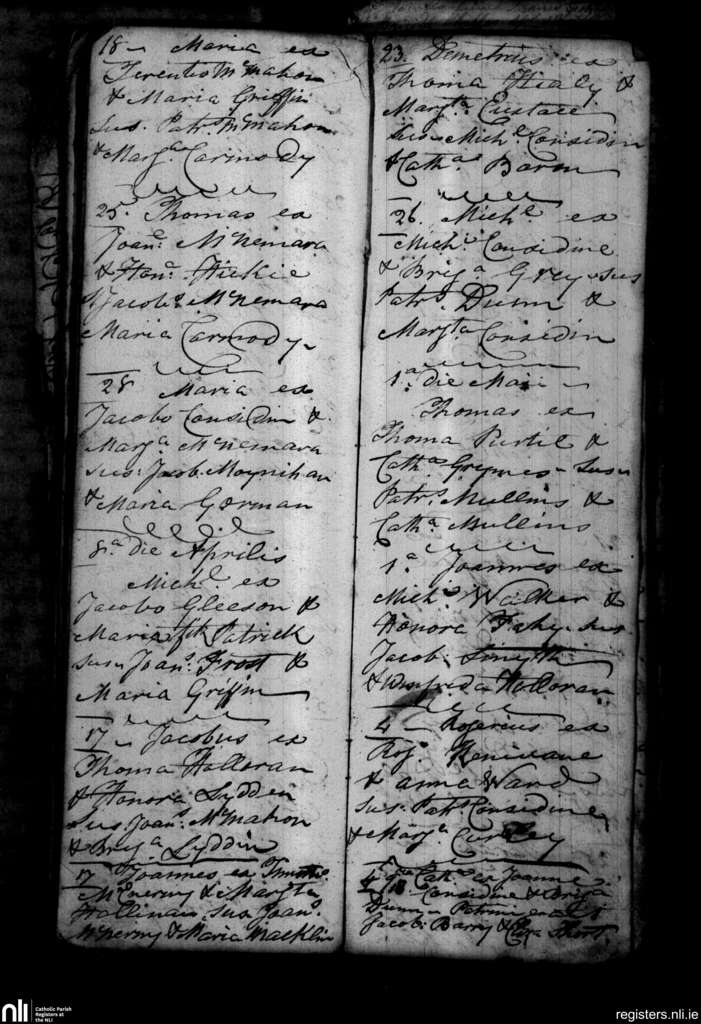 18 - Maria ex
Terentio McMahon
& Maria Griffin
Sus. Patr. McMahon
& Marga. Carmody
25. Thomas ex
Joane. McNemara
& Hona. Hickie
Jacobs. McNemara
Maria Carmody
28 Maria ex
Jacobo Considin &
Marga. McNemara
sus. Jacob. Moynihan
& Maria Gorman
8a. die Aprilis
Michl. ex
Jacobo Gleeson &
Maria Patrick
sus. Joans. Frost &
Maria Griffin
17 - Jacobus ex
Thoma Halloran
& Honora Lydden
Sus. Joans. McMahon
& Briga. Lyddin
17 Joannes ex
& Margta
Hallinan, Sus. Joans.
& Maria Macklin
23. Demetrius ex
Thoma Healy &
Margta. Eustace
Sus. Michl. Considin
& Catha. Baron
26. Michl. ex
Michl. Considine
& Briga. Grey sus
Patrs. Dunn &
Margta. Considin
1a. die Maii -
Thomas ex
Thoma Purtil &
Catha. Grymes - Sus.
Patrs. Mullins &
Catha. Mullins
1a. Joannes ex
Michl. Walker &
Honora Fahy sus.
Jacob. Smyth
& Winefrida Halloran
4 - Rogerius ex
Rog.
& anna Ward
sus. Patrs. Considine
& Marga. Curley
Catha. ex Joanne
18. Considine & Briga.
Dunn - Patrini
Jacob: Barry & Short
nli Catholic Parish
Registers at
the NLI
registers.nli.ie